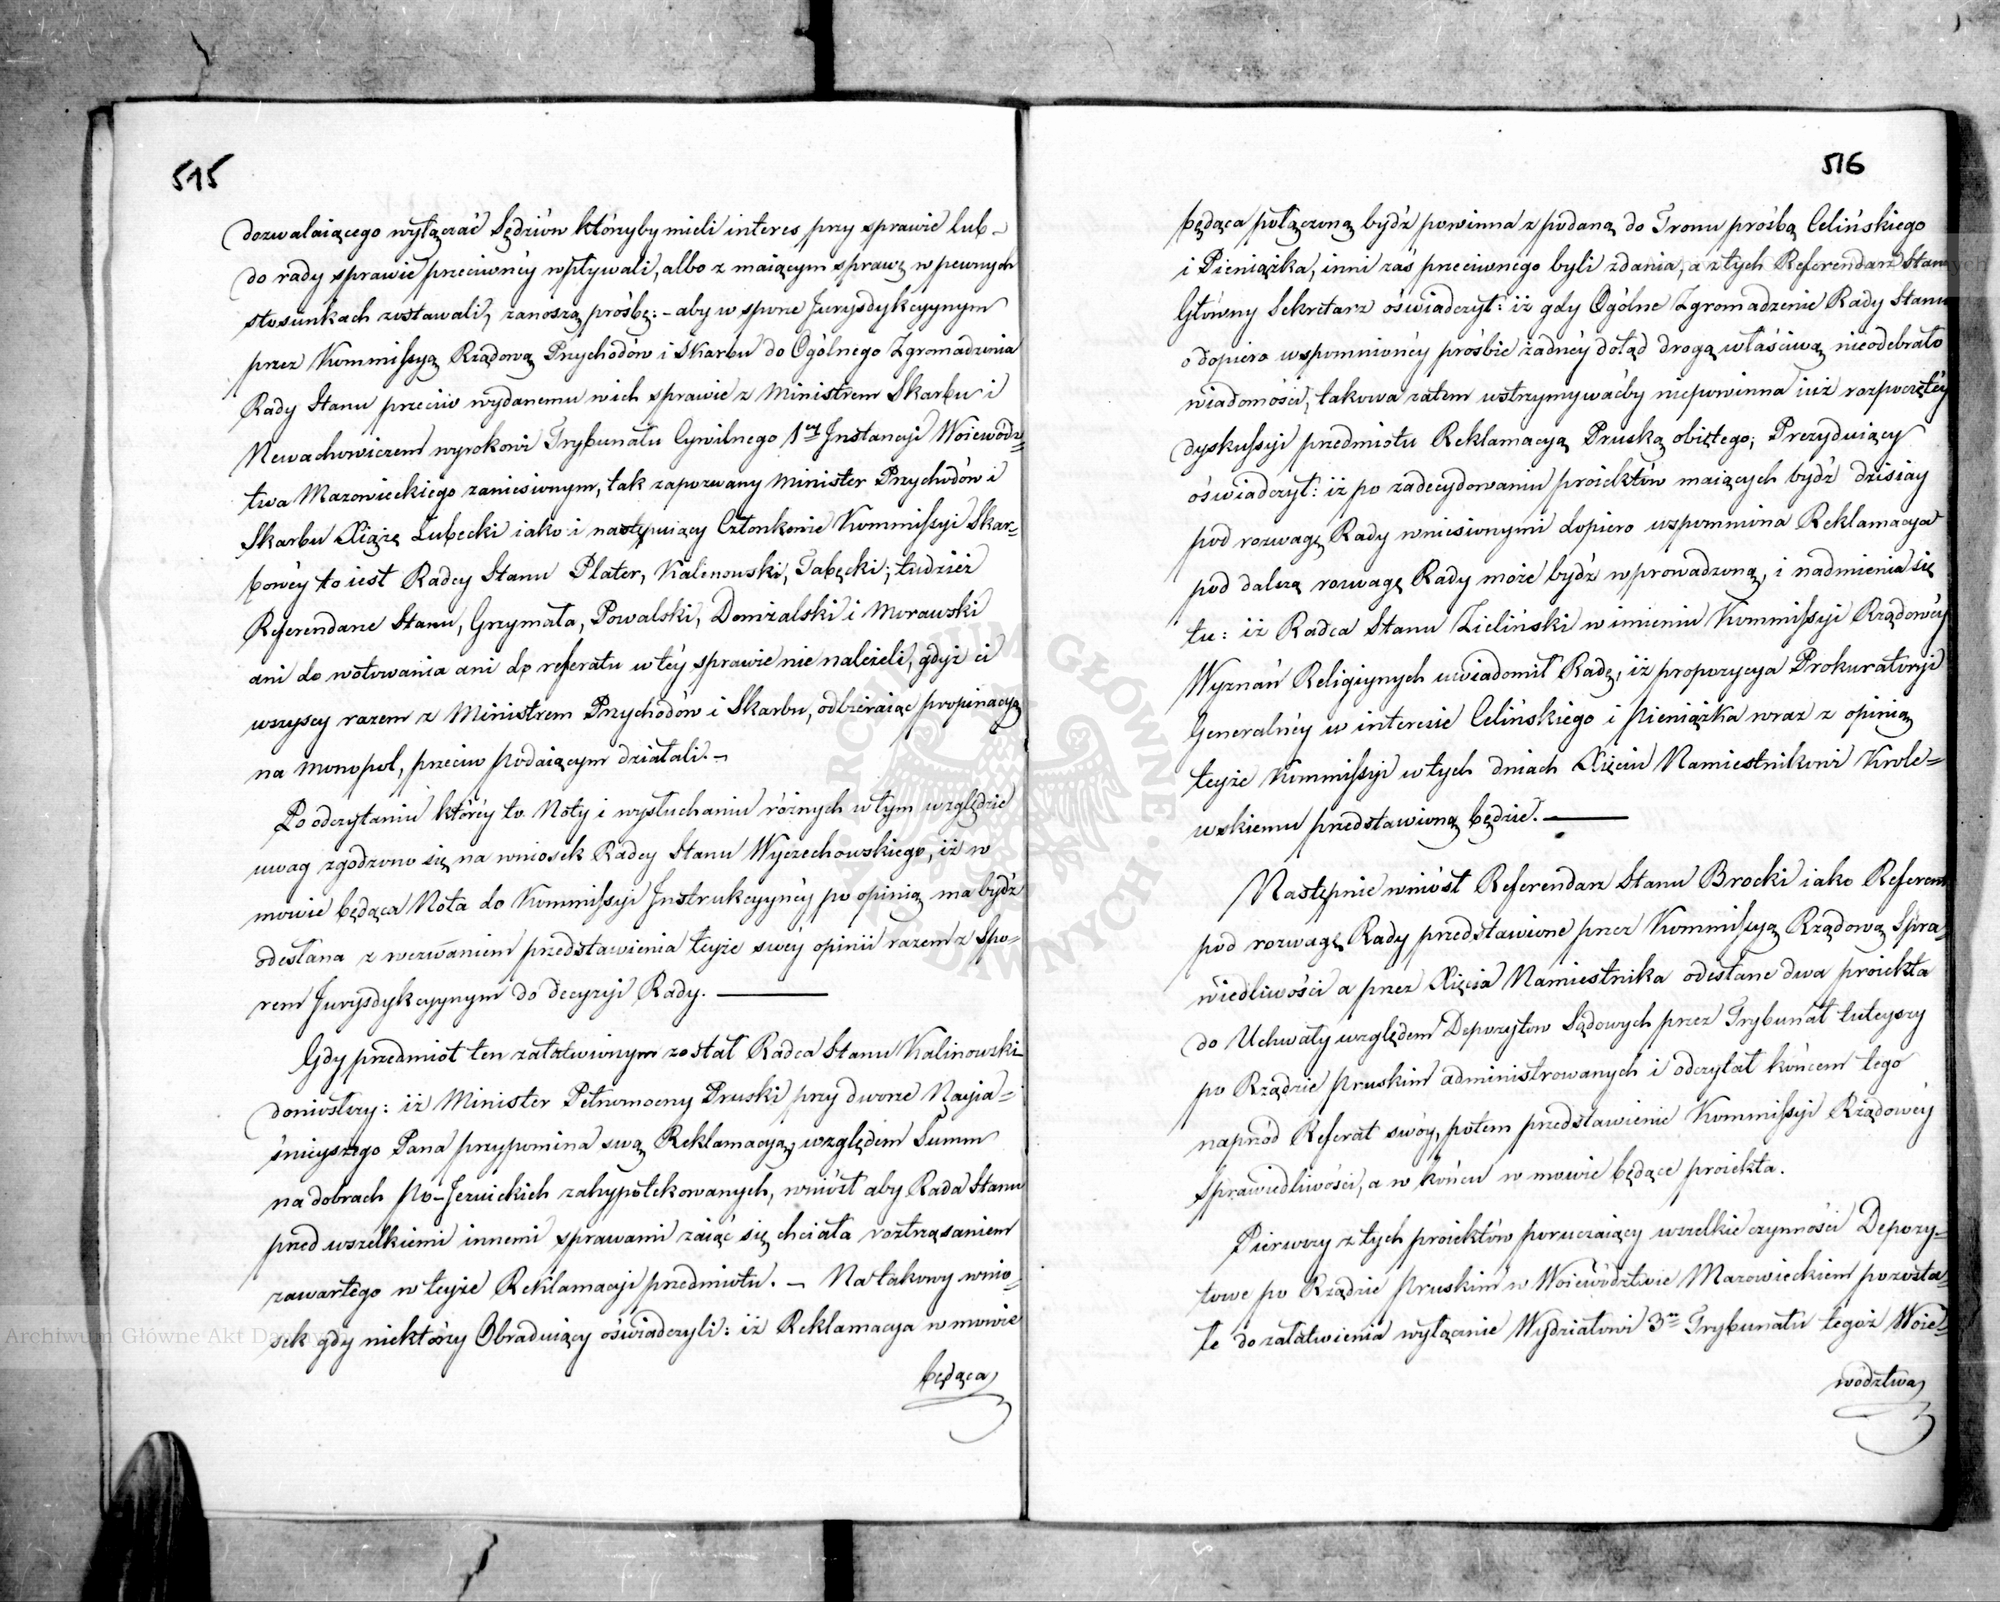 515
dozwalaiącego wyłączać Sędziów którzyby mieli interes przy sprawie lub
do rady sprawie przeciwnéy wpływali, albo z maiącym sprawę w pewnych
stosunkach zostawali, zanoszą prośbę: – aby w sporze Jurysdykcyynym
przez Kommissyą Rządową Przychodów i Skarbu do Ogólnego Zgromadzenia
Rady Stanu przeciw wydanemu w ich sprawie z Ministrem Skarbu i
Newachowiczem wyrokowi Trybunału Cywilnego 1éy Instancyi Woiewódz=
twa Mazowieckiego zaniesionym, tak zapozwany Minister Przychodów i
Skarbu Xiąże Lubecki iako i następuiący Członkowie Kommissyi Skar=
bowéy to iest Radcy Stanu Plater, Kalinowski, Tabęcki; tudzież
Referendarze Stanu, Grzymała, Powalski, Domżalski i Morawski
ani do wotowania ani do referatu w téy sprawie nie należeli, gdyż ci
wszyscy razem z Ministrem Przychodów i Skarbu, odbieraiąc propinacyą
na monopol, przeciw podaiącym działali. –
Po odczytaniu któréy to Noty i wysłuchaniu różnych w tym względzie
uwag zgodzono się na wniosek Radcy Stanu Wyczechowskiego, iż w
mowie będąca Nota do Kommissyi Instrukcyynéy po opinią ma bydź
odesłana z wezwaniem przedstawienia teyże swéy opinii razem z Spo=
rem Jurysdykcyynym do decyzyi Rady. ———
Gdy przedmiot ten załatwionym został Radca Stanu Kalinowski
doniosłszy: iż Minister Pełnomocny Pruski przy dworze Nayia=
śnieyszego Pana przypomina swą Reklamacyą względem Summ
na dobrach po-Jezuickich zahypotekowanych, wniósł aby Rada Stanu
przed wszelkiemi innemi sprawami zaiąć się chciała roztrząsaniem
zawartego w teyże Reklamacyi przedmiotu. – Na takowy wnio=
sek gdy niektórzy Obraduiący oświadczyli: iż Reklamacya w mowie
będąca
516
będąca połączoną bydź powinna z podaną do Tronu prośbą Celińskiego
i Pieniążka, inni zaś przeciwnego byli zdania, a z tych Referendarz Stanu
Główny Sekretarz oświadczył: iż gdy Ogólne Zgromadzenie Rady Stanu
o dopiero wspomnionéy prośbie żadnéy dotąd drogą właściwą nieodebrało
wiadomości, takowa zatem wstrzymywaćby niepowinna iuż rozpoczętéy
dyskussyi przedmiotu Reklamacyą Pruską obiętego; Prezyduiący
oświadczył: iż po zadecydowaniu proiektów maiących bydź dzisiay
pod rozwagę Rady wniesionymi dopiero wspomniona Reklamacya
pod dalszą rozwagę Rady może bydź wprowadzoną, i nadmienia się
tu: iż Radca Stanu Zieliński w imieniu Kommissyi Rządowéy
Wyznań Religiynych uwiadomił Radę, iż propozycya Prokuratoryi
Generalnéy w interesie Celińskiego i Pieniążka wraz z opinią
teyże Kommissyi w tych dniach Xięciu Namiestnikowi Króle=
wskiemu przedstawioną będzie. ———
Następnie wniósł Referendarz Stanu Brocki iako Referent
pod rozwagę Rady przedstawione przez Kommissyą Rządową Spra=
wiedliwości a przez Xięcia Namiestnika odesłane dwa proiekta
do Uchwały względem Depozytów Sądowych przez Trybunał tuteyszy
po Rządzie Pruskim administrowanych i odczytał końcem tego
naprzód Referat swóy, potem przedstawienie Kommissyi Rządowéy
Sprawiedliwości, a w końcu w mowie będące proiekta.
Pierwszy z tych proiektów poruczaiący wszelkie czynności Depozy=
towe po Rządzie Pruskim w Woiewództwie Mazowieckiem pozosta=
łe do załatwienia wyłącznie Wydziałowi 3mu Trybunału tegoż Woie=
wództwa
Archiwum Główne Akt Dawnych
ARCHIWUM GŁÓWNE AKT DAWNYCH